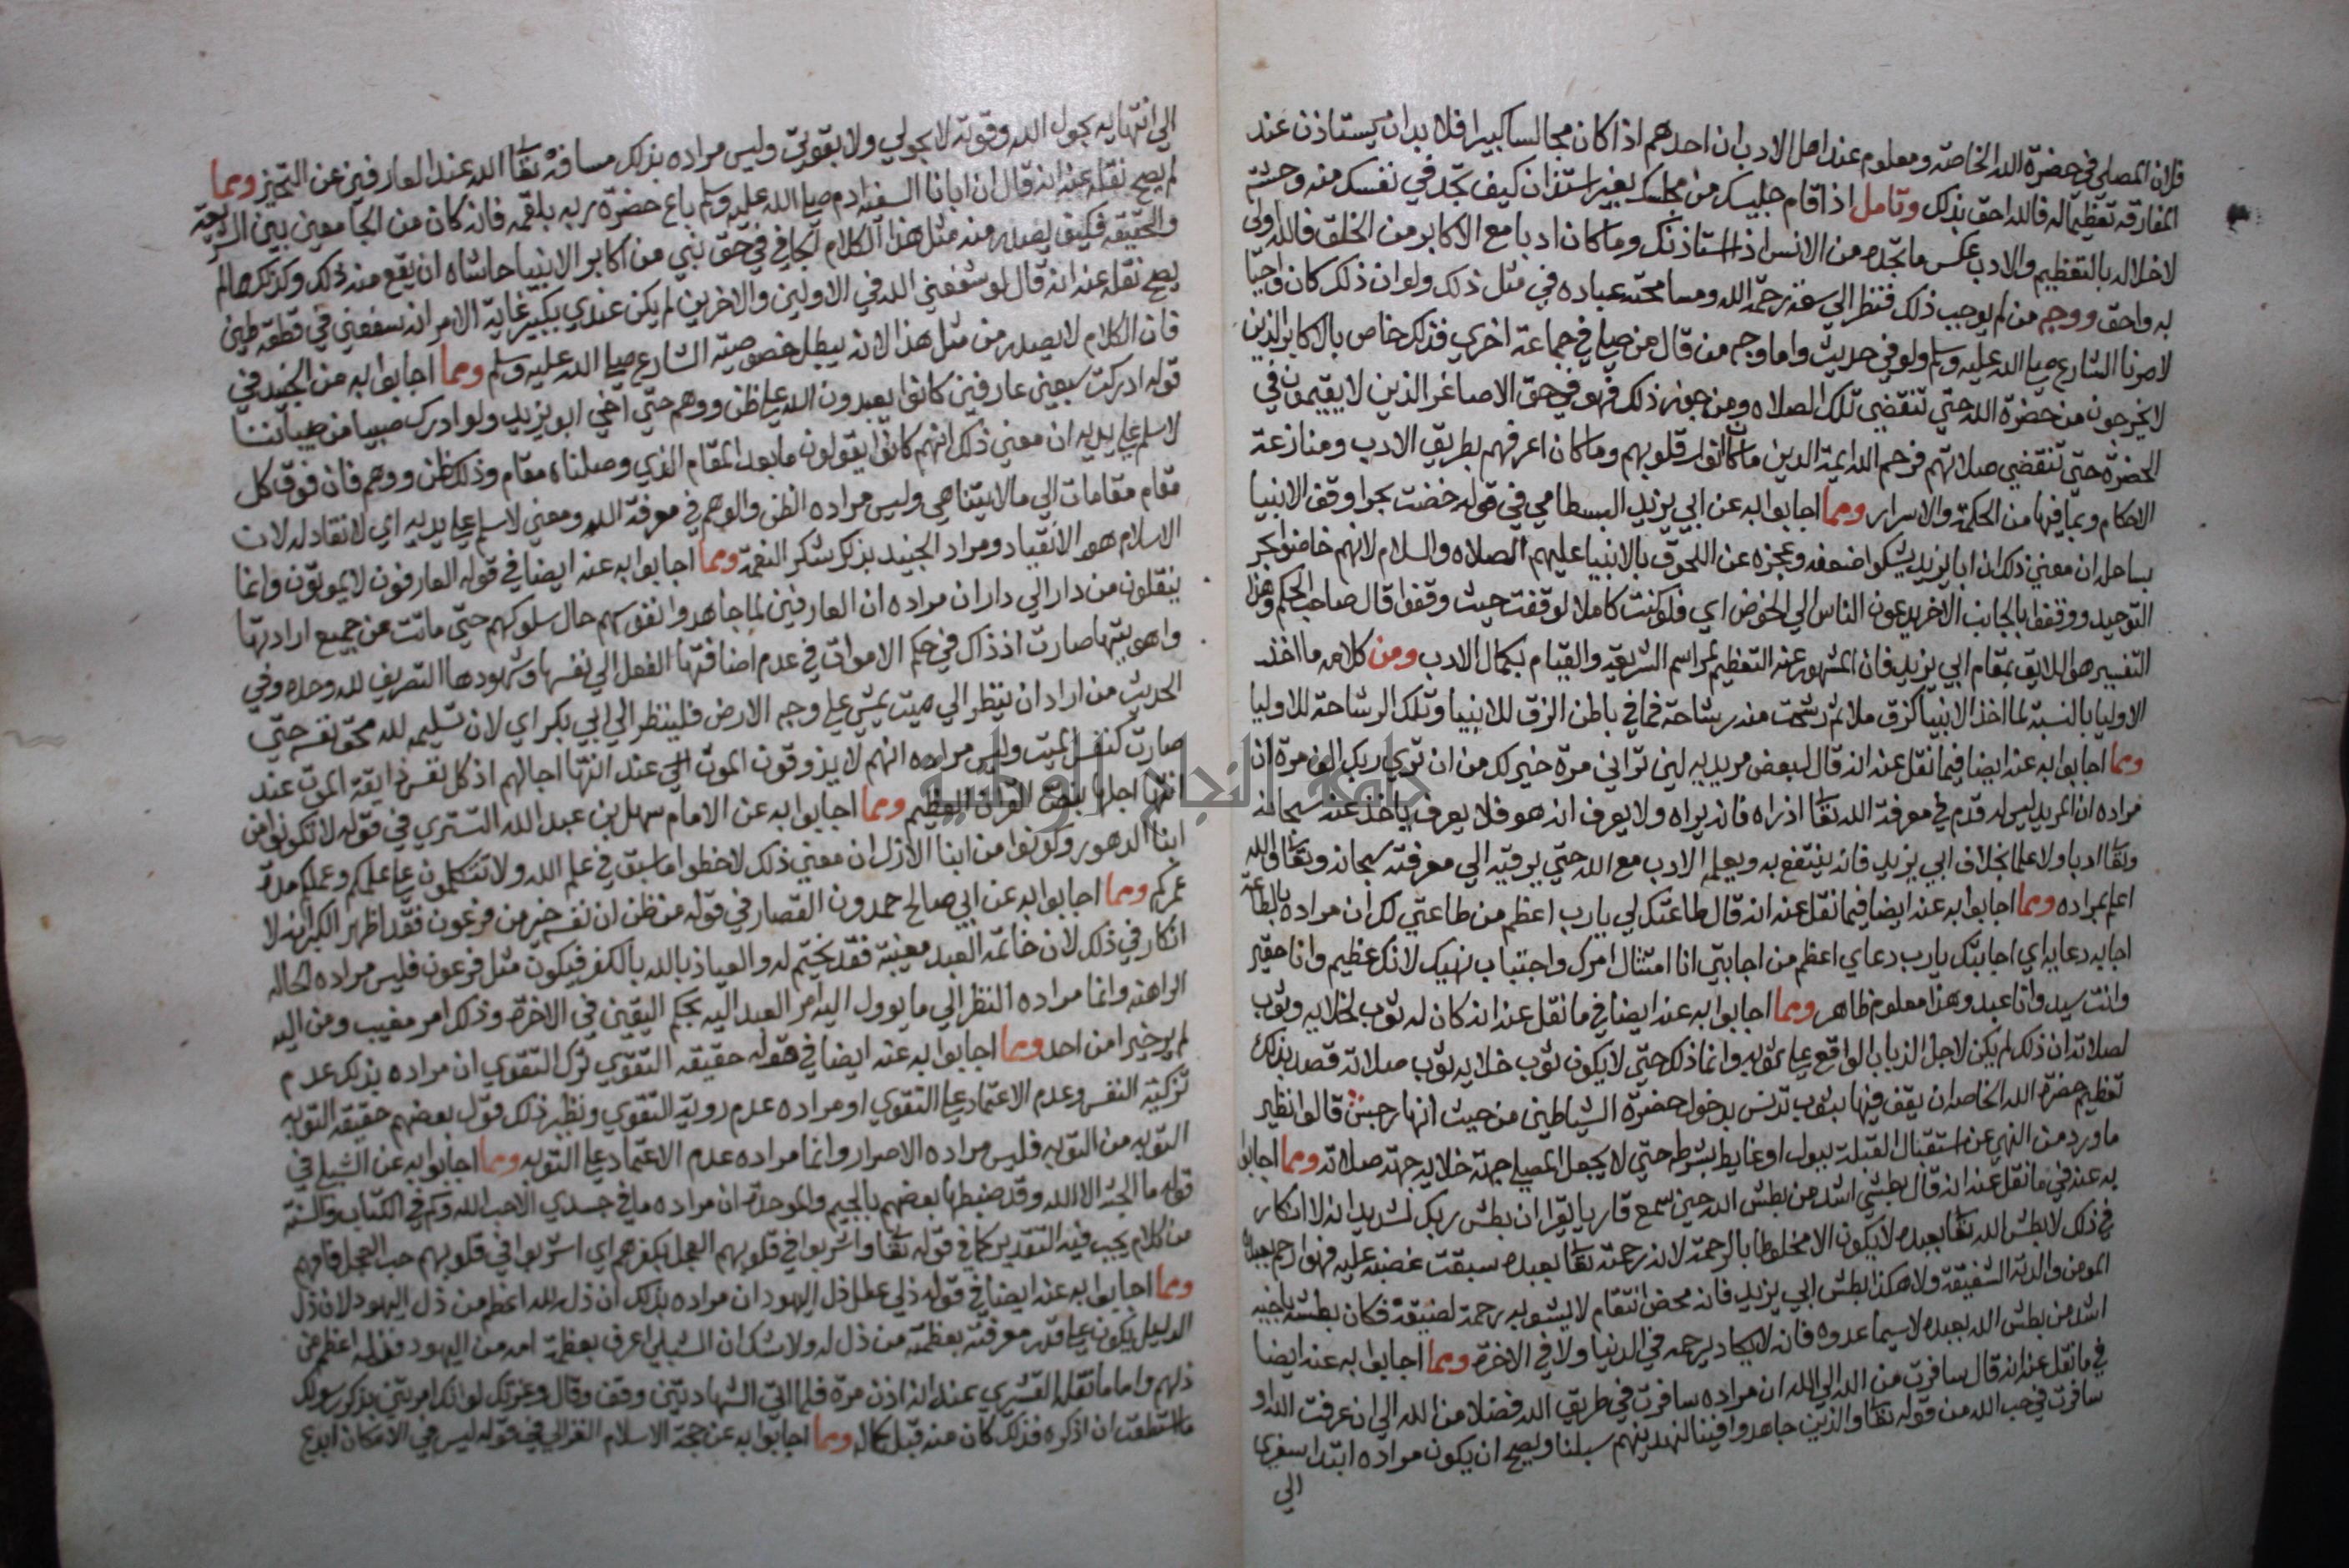 فلان المصلي في حضرة الله الخاصة ومعلوم عند اهل الادب ان احدهم اذا كان مجالسا كبيرا فلا بد ان يستاذن عند
المفارقه تعظيما له فالله احق بذلك وتامل اذا قام جليسك من مجلسك بغير استئذان كيف تجد في نفسك منه وحشة
لاخلاله بالتعظيم والادب عكس ما تجده من الانس اذا استاذنك وما كان ادبا مع الاكابر من الخلق فالله اولى
به واحق ووجه من لم يوجب ذلك فنظر الي سعة رحمة الله ومسامحته عباده في مثل ذلك ولو ان ذلك كان واجبا
لامرنا الشارع صلي الله عليه وسلم ولو في حديث واما وجه من قال من صلي في جماعة اخري فذلك خاص بالاكابر الذين
لا يخرجون من حضرة الله حتي تنقضي تلك الصلاه ومن جوز ذلك فهو في حق الاصاغر الذين لا يقيمون في
الحضرة حتي تنقضي صلاتهم فرحم الله ايمة الدين ما كان انور قلوبهم وما كان اعرفهم بطريق الادب ومنازعة
الاحكام وبما فيها من الحكمة والاسرار ومما اجابوا به عن ابي يزيد البسطامي في قوله خضت بحرا وقف الانبيا
بساحله ان معني ذلك ان ابا يزيد يشكوا ضعفه وعجزه عن اللحوق بالانبيا عليهم الصلاه والسلام لانهم خاضوا بحر
التوحيد ووقفوا بالجانب الاخر يدعون الناس الي الخوض اي فلو كنت كاملا لوقفت حيث وقفوا قال صاحب الحكم وهذا
التفسير هو اللايق بمقام ابي يزيد فان المشهور عنه التعظيم لمراسم الشريعة والقيام بكمال الادب ومن كلامه ما اخذ
الاوليا بالنسبة لما اخذ الانبيا كزق ملا ثم رشحت منه رشاحة فما في باطن الزق للانبيا وتلك الرشاحة للاوليا
ومما اجابوا به عنه ايضا فيما نقل عنه انه قال لبعض مريديه لين تراني مرة خير لك من ان تري ربك الف مرة ان
مراده ان المريد ليس له قدم في معرفة الله تعا اذ راه فانه يراه ولا يعرف انه هو فلا يعرف ياخذ عنه سبحانه
وتعا ادبا ولا علما بخلاف ابي يزيد فانه ينتفع به ويعلمه الادب مع الله حتي يرقيه الي معرفته سبحانه وتعا والله
اعلم بمراده ومما اجابوا به عنه ايضا فيما نقل عنه انه قال طاعتك لي يارب اعظم من طاعتي لك ان مراده بالطاعة
اجابة دعايه اي اجابتك يارب دعاي اعظم من اجابتي انا امتثال امرك واجتناب نهيك لانك عظيم وانا حقير
وانت سيد وانا عبد وهذا معلوم ظاهر ومما اجابوا به عنه ايضا في ما نقل عنه انه كان له ثوب لخلايه وثوب
لصلاته ان ذلك لم يكن لاجل الذباب الواقع علي ثوبه وانما ذلك حتي لا يكون ثوب خلايه ثوب صلاته قصد بذلك
تعظيم حضرة الله الخاصة ان يقف فيها بثوب تدنس بدخول حضرة الشياطين من حيث انها رجس قالوا نظير
ما ورد من النهي عن استقبال القبلة ببول او غايط بشرطه حتي لا يجعل المصلي جهة خلايه جهة صلاته ومما اجابوا
به عنه في ما نقل عنه انه قال بطشي اشد من بطش الله حين سمع قاريا يقرا ان بطش ربك لشديد انه لا انكار
في ذلك لا بطش الله تعا بعبده لا يكون الا مخلوطا بالرحمة لانه رحمة تعا بعبده سبقت غضبه عليه فهو ارحم بعبده
المومن والدته الشفيقة ولا هكذا بطش ابي يزيد فانه محض انتقام لا يشوبه رحمة لضيقه فكان بطشه باخيه
اشد من بطش الله بعبده لاسيما عدوه فانه لا يكاد يرحمه في الدنيا ولا في الاخرة ومما اجابوا به عنه ايضا
في ما نقل عنه انه قال سافرت من الله الي الله ان مراده سافرت في طريق الله فضلا من الله الي ان عرفت الله او
سافرت في حب الله من قوله تعا والذين جاهدوا فينا لنهدينهم سبلنا ويصح ان يكون مراده ابتدا سفري
الي
الي انتهايه بحول الله وقوته لا بحولي ولا بقوتي وليس مراده بذلك مسافة تعا الله عند العارفين عن التحيز ومما
لم يصح نقله عنه انه قال ان ابانا السيد ادم صلي الله عليه وسلم باع حضرة ربه بلقمه فانه كان من الجامعين بين الشريعة
والحقيقه فكيف يصدر منه مثل هذا الكلام الجافي في حق نبي من اكابر الانبيا حاشاه ان يقع منه ذلك وكذلك مما لم
يصح نقله عنه انه قال لو شفعني الله في الاولين والاخرين لم يكن عندي بكبير غاية الامر انه شفعني في قطعة طين
فان الكلام لا يصدر من مثل هذا لانه يبطل خصوصية الشارع صلي الله عليه وسلم ومما اجابوا به عن الجنيد في
قوله ادركت سبعين عارفين كانوا يعبدون الله علي ظن ووهم حتي اخي ابو يزيد ولو ادرك صبيا من صبياننا
لاسلم علي يديه ان معني ذلك انهم كانوا يقولون ما بعد المقام الذي وصلناه مقام وذلك ظن ووهم فان فوق كل
مقام مقامات الي ما لا يتناهي وليس مراده الظن والوهم في معرفة الله ومعني لاسلم علي يديه اي لانقاد له لان
الاسلام هو الانقياد ومراد الجنيد بذلك شكر النعمة ومما اجابوا به عنه ايضا في قوله العارفون لا يموتون وانما
ينقلون من دار الي دار ان مراده ان العارفين لما جاهدوا نفوسهم حال سلوكهم حتي ماتت عن جميع ارادتها
واهويتها صارت اذ ذاك في حكم الاموات في عدم اضافتها الفعل الي نفسها وشهودها التصريف لله وحده وفي
الحديث من اراد ان ينظر الي ميت يمشي علي وجه الارض فلينظر الي ابي بكر اي لان تسليمه لله محق نفسه حتي
صارت كنفس الميت وليس مراده انهم لا يذوقون الموت الحي عند انتها اجالهم اذ كل نفس ذايقة الموت عند
انتها اجلها بنص القران العظيم ومما اجابوا به عن الامام سهل بن عبد الله التستري في قوله لا تكونوا من
ابنا الدهور وكونوا من ابنا الازل ان معني ذلك لاحظوا ما سبق في علم الله ولا تتكلمون علي علمكم وعملكم مدة
عمركم ومما اجابوا به عن ابي صالح حمدون القصار في قوله من ظن ان نفسه خير من فرعون فقد اظهر الكبر انه لا
انكار في ذلك لان خاتمة العبد مغيبة فقد يختم له والعياذ بالله بالكفر فيكون مثل فرعون فليس مراده الحالة
الراهنه وانما مراده النظر الي ما يوول اليه امر العبد اليه بحكم اليقين في الاخرة وذلك امر مغيب ومن اليه
لم ير خيرا من احد ومما اجابوا به عنه ايضا في قوله حقيقة التقوي ترك التقوي ان مراده بذلك عدم
تزكية النفس وعدم الاعتماد علي التقوي او مراده عدم روية التقوي ونظير ذلك قول بعضهم حقيقة التوبه
التوبه من التوبه فليس مراده الاصرار وانما مراده عدم الاعتماد علي التوبه ومما اجابوا به عن الشبلي في
قوله ما الجبة الا الله وقد ضبطها بعضهم بالجيم والموحدة ان مراده ما في جسدي الا حب الله وكم في الكتاب والسنة
من كلام يجب فيه التقدير كما في قوله تعا واشربوا في قلوبهم العجل بكفرهم اي اشربوا في قلوبهم حب العجل فافهم
ومما اجابوا به عنه ايضا في قوله ذلي عطل ذل اليهود ان مراده بذلك ان ذل لله اعظم من ذل اليهود لان ذل
الدليل يكون علي قدر معرفته بعظمة من ذل له ولا شك ان الشبلي اعرف بعظمة الله من اليهود فذله اعظم من
ذلهم واما ما نقله القشيري عنه انه اذن مرة فلما اتي الشهادتين وقف وقال وعزتك لولا انك امرتني بذكر رسولك
ما استطعت ان اذكره فذلك كان منه قبل كماله ومما اجابوا به عن حجة الاسلام الغزالي في قوله ليس في الامكان ابدع
جامعة النجاح الوطنية